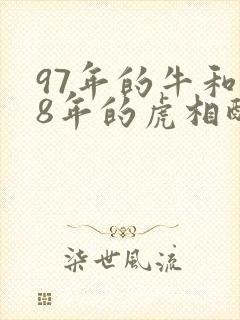 97年的牛和
8年的虎相配
柒世风流